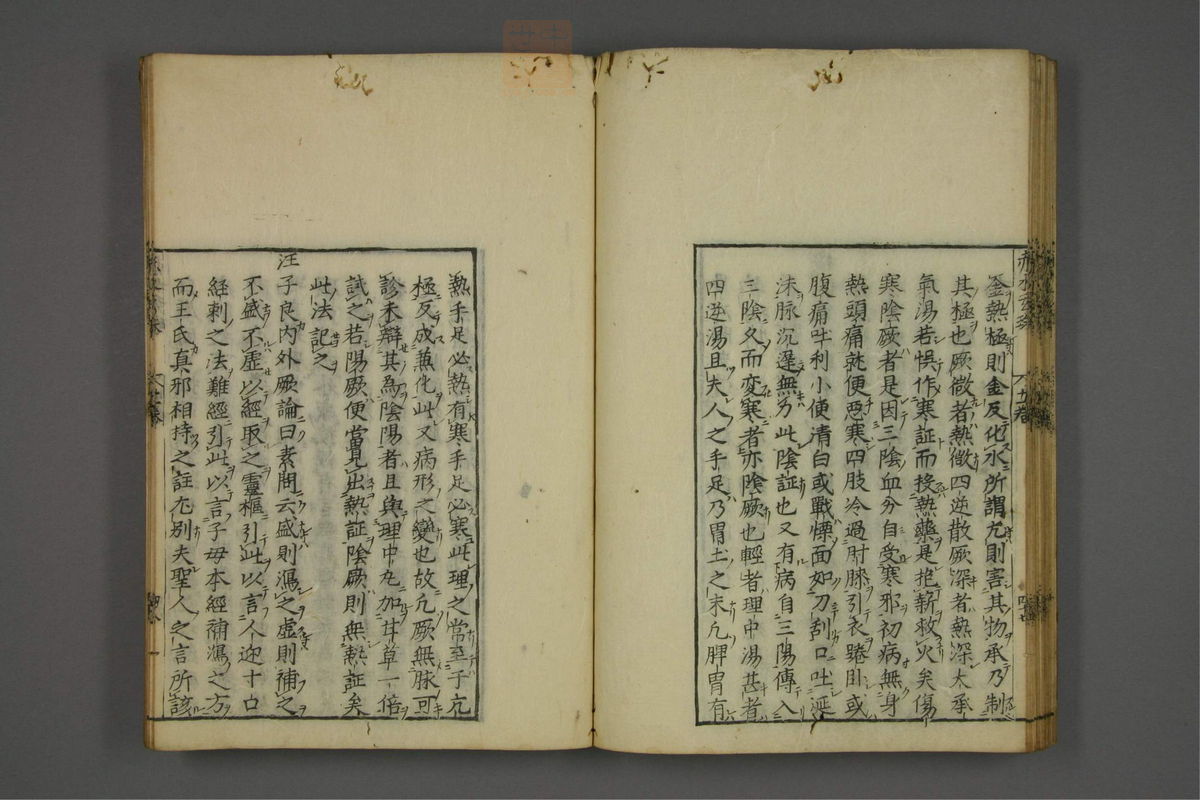 釜熱極則金反化水所謂亢則害其物承乃制
其極也厥微者熱微四逆散厥深者熱深大承
氣湯若悞作寒証而投熱藥是抱薪救火矣傷
寒陰厥者是因三陰血分自受寒邪初病無身
熱頭痛就便惡寒四肢冷過肘膝引衣踡卧或
腹痛吐利小便清白或戰慄面如刀刮口吐涎
沫脉沉遲無力此陰証也又有病自三陽傳入
三陰久而変寒者亦陰厥也輕者理中湯甚者
四逆湯且夫人之手足乃胃土之末凡脾胃有
熱手足必熱有寒手足必寒此理之常至于亢
極反成兼化此又病形之變也故凡厥無脉可
診未辯其為陰陽者且與理中丸加甘草一倍
試之若陽厥便當見出熱証陰厥則無熱証矣
此法記之
汪子良内外厥論曰素問云盛則瀉之虛則補之
不盛不虛以經取之靈樞引此以言人迎寸口
経刺之法難經引此以言子母本經補瀉之方
而王氏真邪相持之註尤別夫聖人之言所該